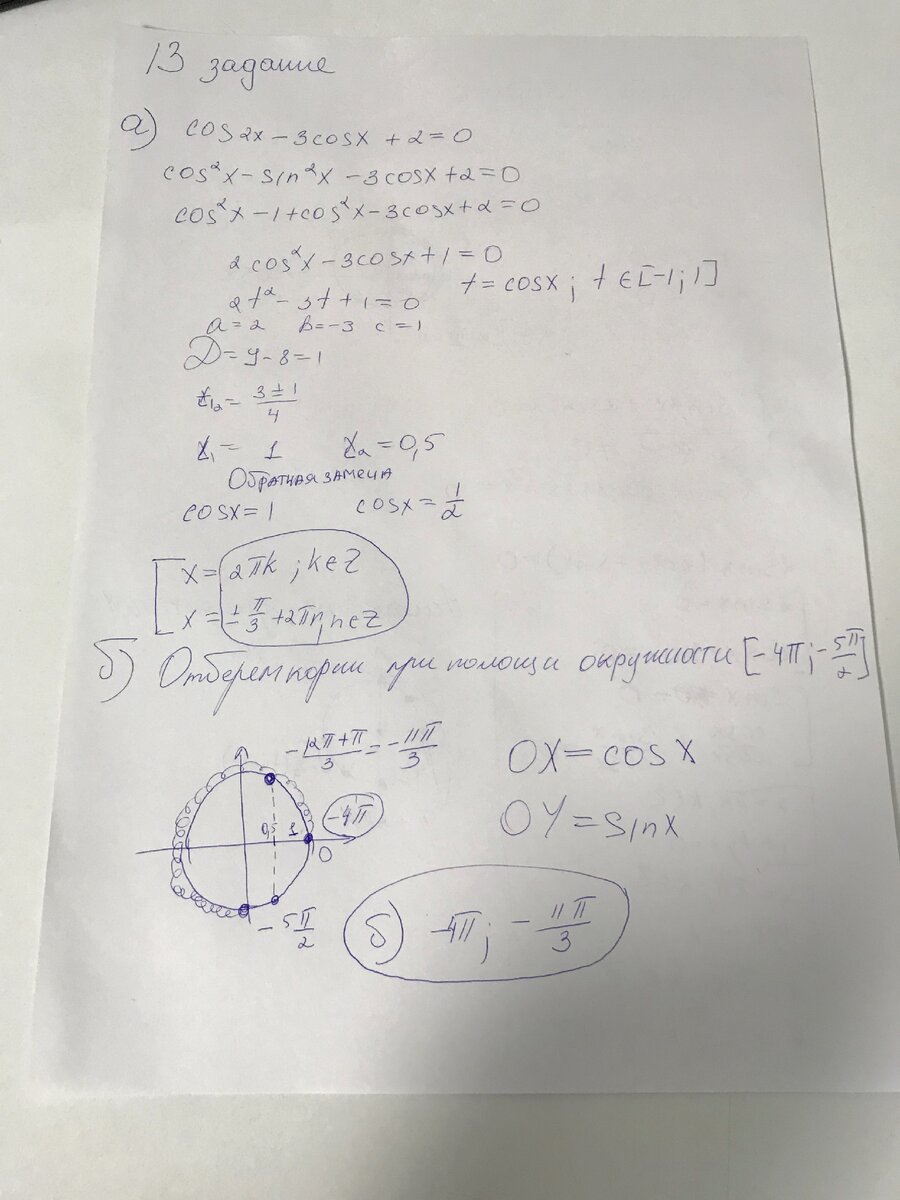 13 задание
а) cos2x − 3cosx + 2 = 0
cos²x − sin²x − 3cosx + 2 = 0
cos²x − 1 + cos²x − 3cosx + 2 = 0
2cos²x − 3cosx + 1 = 0
t = cosx; t ∈ [−1; 1]
2t² − 3t + 1 = 0
a = 2 b = −3 c = 1
D = 9 − 8 = 1
t₁₂ = (3 ± 1)/4
t₁ = 1 t₂ = 0,5
Обратная замена
cosx = 1 cosx = 1/2
[ x = 2πk; k∈Z
x = ± π/3 + 2πn, n∈Z
б) Отберем корни при помощи окружности [−4π; −5π/2]
−(12π+π)/3 = −11π/3
OX = cosx
−4π
0,5 1
0
OY = sinx
−5π/2
б) −4π; −11π/3